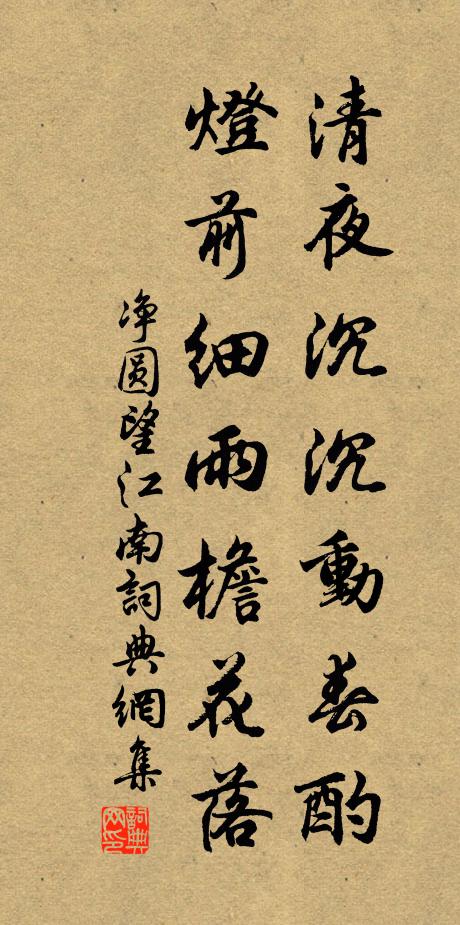 清夜沉沉動春酌
燈前細雨檐花落
净圆望江南詞典網集
詞典網印